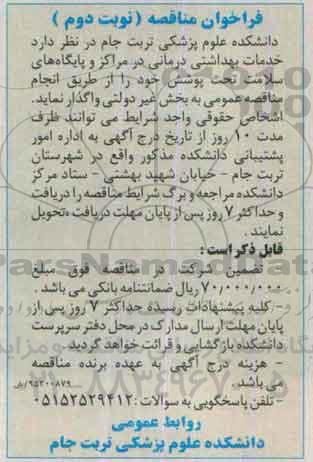 فراخوان مناقصه ( نوبت دوم )
دانشکده علوم پزشکی تربت جام در نظر دارد
خدمات بهداشتی درمانی در مراکز و پایگاه‌های
سلامت تحت پوشش خود را از طریق انجام
مناقصه عمومی به بخش غیر دولتی واگذار نماید.
اشخاص حقوقی واجد شرایط می توانند ظرف
مدت ۱۰ روز از تاریخ درج آگهی به اداره امور
پشتیبانی دانشکده مذکور واقع در شهرستان
تربت جام - خیابان شهید بهشتی - ستاد مرکز
دانشکده مراجعه و برگ شرایط مناقصه را دریافت
و حداکثر ۷ روز پس از پایان مهلت دریافت ،تحویل
نمایند .
قابل ذکر است :
- تضمین شرکت در مناقصه فوق مبلغ
۷۰/۰۰۰/۰۰۰ ریال ضمانتنامه بانکی می باشد .
- کلیه پیشنهادات رسیده حداکثر ۷ روز پس از
پایان مهلت ارسال مدارک در محل دفتر سرپرست
دانشکده بازگشایی و قرائت خواهد گردید .
- هزینه درج آگهی به عهده برنده مناقصه
می باشد. ۹۵۲۰۰۸۷۹
- تلفن پاسخگویی به سوالات : ۰۵۱۵۲۵۲۹۴۱۲
روابط عمومی
دانشکده علوم پزشکی تربت جام